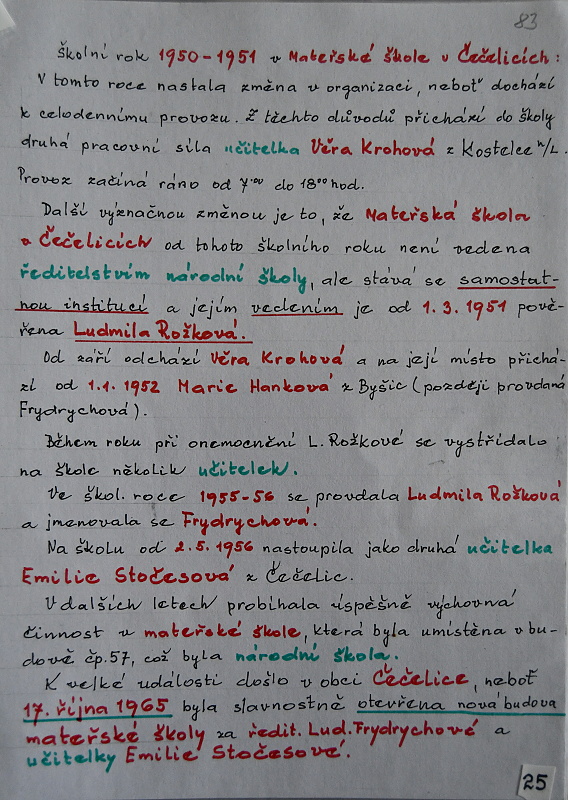 83
Školní rok 1950-1951 v Mateřské škole v Čečelicích:
V tomto roce nastala změna v organizaci, neboť dochází
k celodennímu provozu. Z těchto důvodů přichází do školy
druhá pracovní síla učitelka Věra Krohová z Kostelce n/L.
Provoz začíná ráno od 7⁰⁰ do 18⁰⁰ hod.
Další význačnou změnou je to, že Mateřská škola
v Čečelicích od tohoto školního roku není vedena
ředitelstvím národní školy, ale stává se samostat-
nou institucí a jejím vedením je od 1.3.1951 pově-
řena Ludmila Rožková.
Od září odchází Věra Krohová a na její místo přichá-
zí od 1.1.1952 Marie Hanková z Byšic (později provdaná
Frydrychová).
Během roku při onemocnění L. Rožkové se vystřídalo
na škole několik učitelek.
Ve škol. roce 1955-56 se provdala Ludmila Rožková
a jmenovala se Frydrychová.
Na školu od 2.5.1956 nastoupila jako druhá učitelka
Emilie Stočesová z Čečelic.
V dalších letech probíhala úspěšně výchovná
činnost v mateřské škole, která byla umístěna v bu-
dově čp.57, což byla národní škola.
K velké události došlo v obci Čečelice, neboť
17. října 1965 byla slavnostně otevřena nová budova
mateřské školy za ředit. Lud. Frydrychové a
učitelky Emilie Stočesové.
25